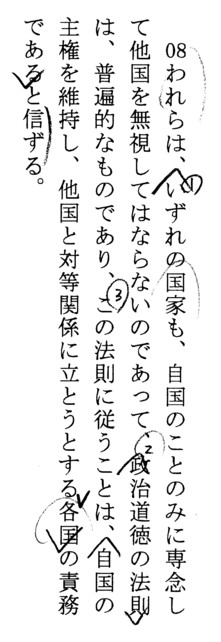 08われらは、いずれの国家も、自国のことのみに専念し
て他国を無視してはならないのであって、政治道徳の法則
は、普遍的なものであり、この法則に従うことは、自国の
主権を維持し、他国と対等関係に立とうとする各国の責務
であると信ずる。
①
2
③